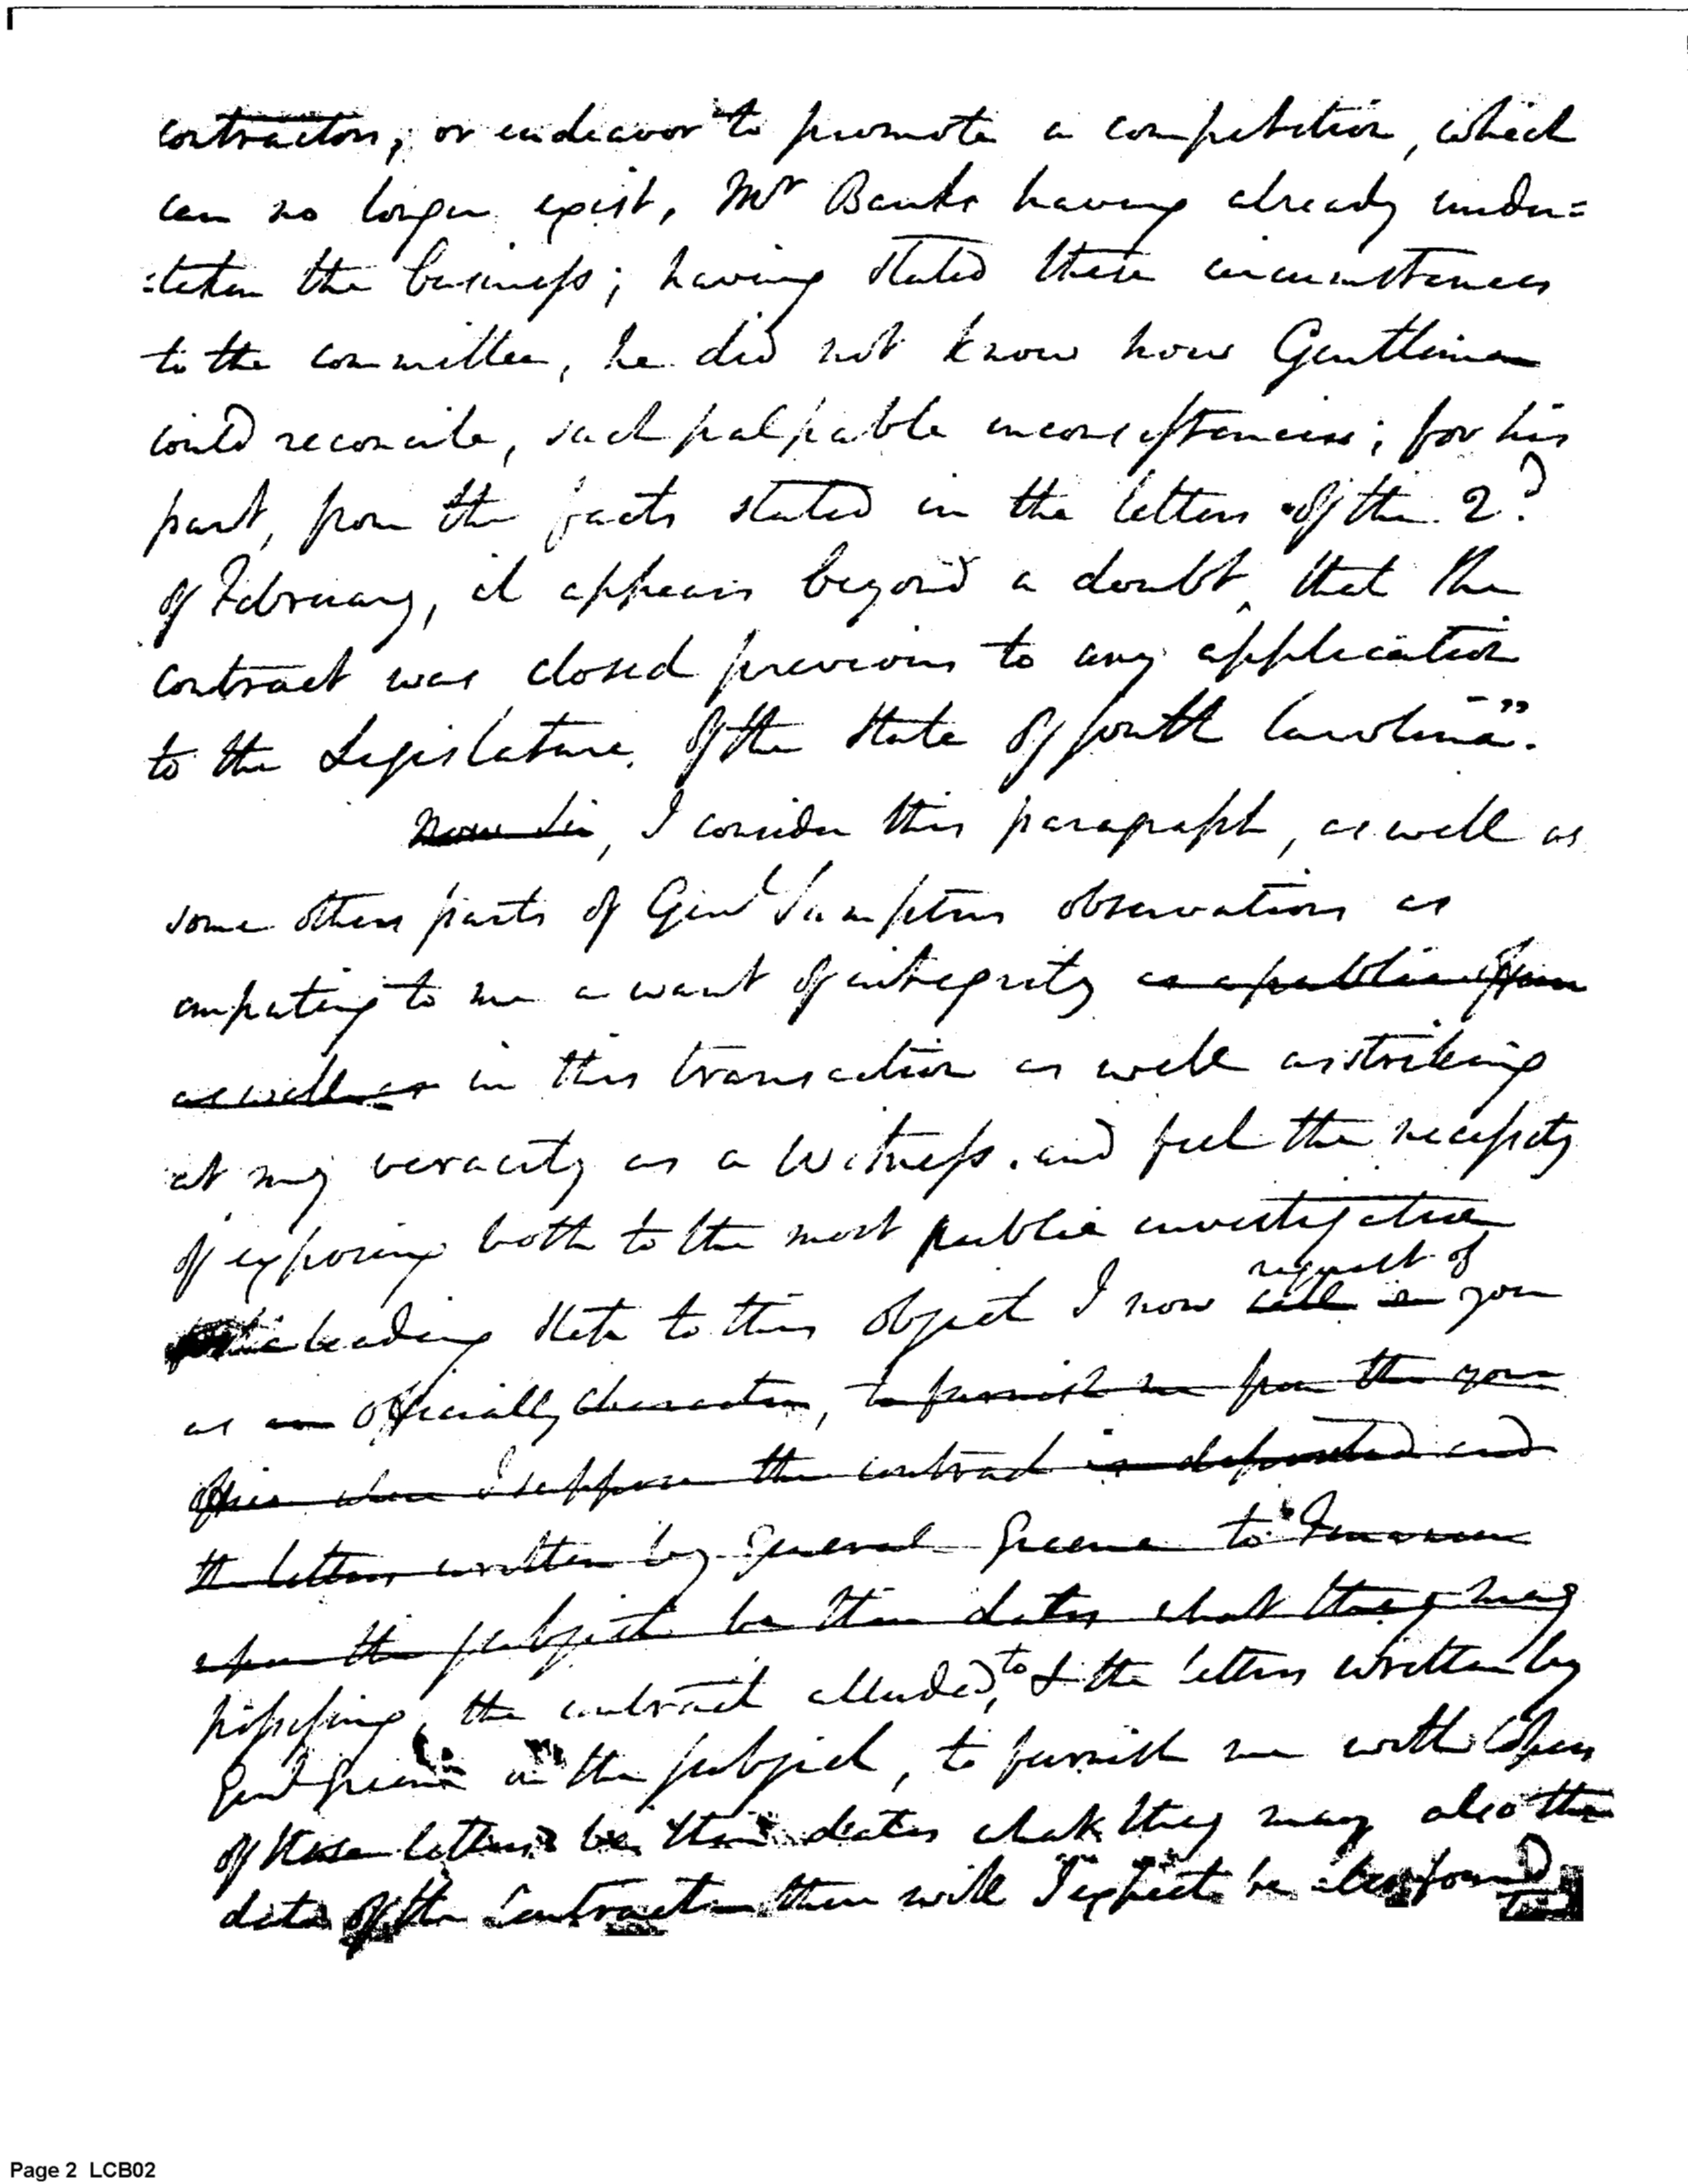 contractors, or endeavor to promote a competition, which
can no longer exist, Mr Banks having already under=
=taken the business; having stated these circumstances
to the committee, he did not know how Gentlemen
could reconcile, such palpable inconsistencies; for his
part, from the facts stated in the letters of the 2d
of February, it appears beyond a doubt, that the
contract was closed previous to any application
to the Legislature, of the State of South Carolina".
Now Sir, I consider this paragraph, as well as
some others parts of Genl Sumpters observations as
imputing to me a want of integrity as a public
as well as in this transaction as well as striking
at my veracity as a Witness. and feel the necessity
of exposing both to the most public investigation
request of
leading state to this object I now call on you
as an officially character, to furnish me from the your
office where I suppose the contract is deposited and
the letters written by General Greene to
upon the subject be their dates what they may
possessing, the contract alluded, to & the letters written by
Genl Greene on the subject, to furnish me with Copies
of these letters be their dates what they may also the
date of the Contract then will I expect be also found